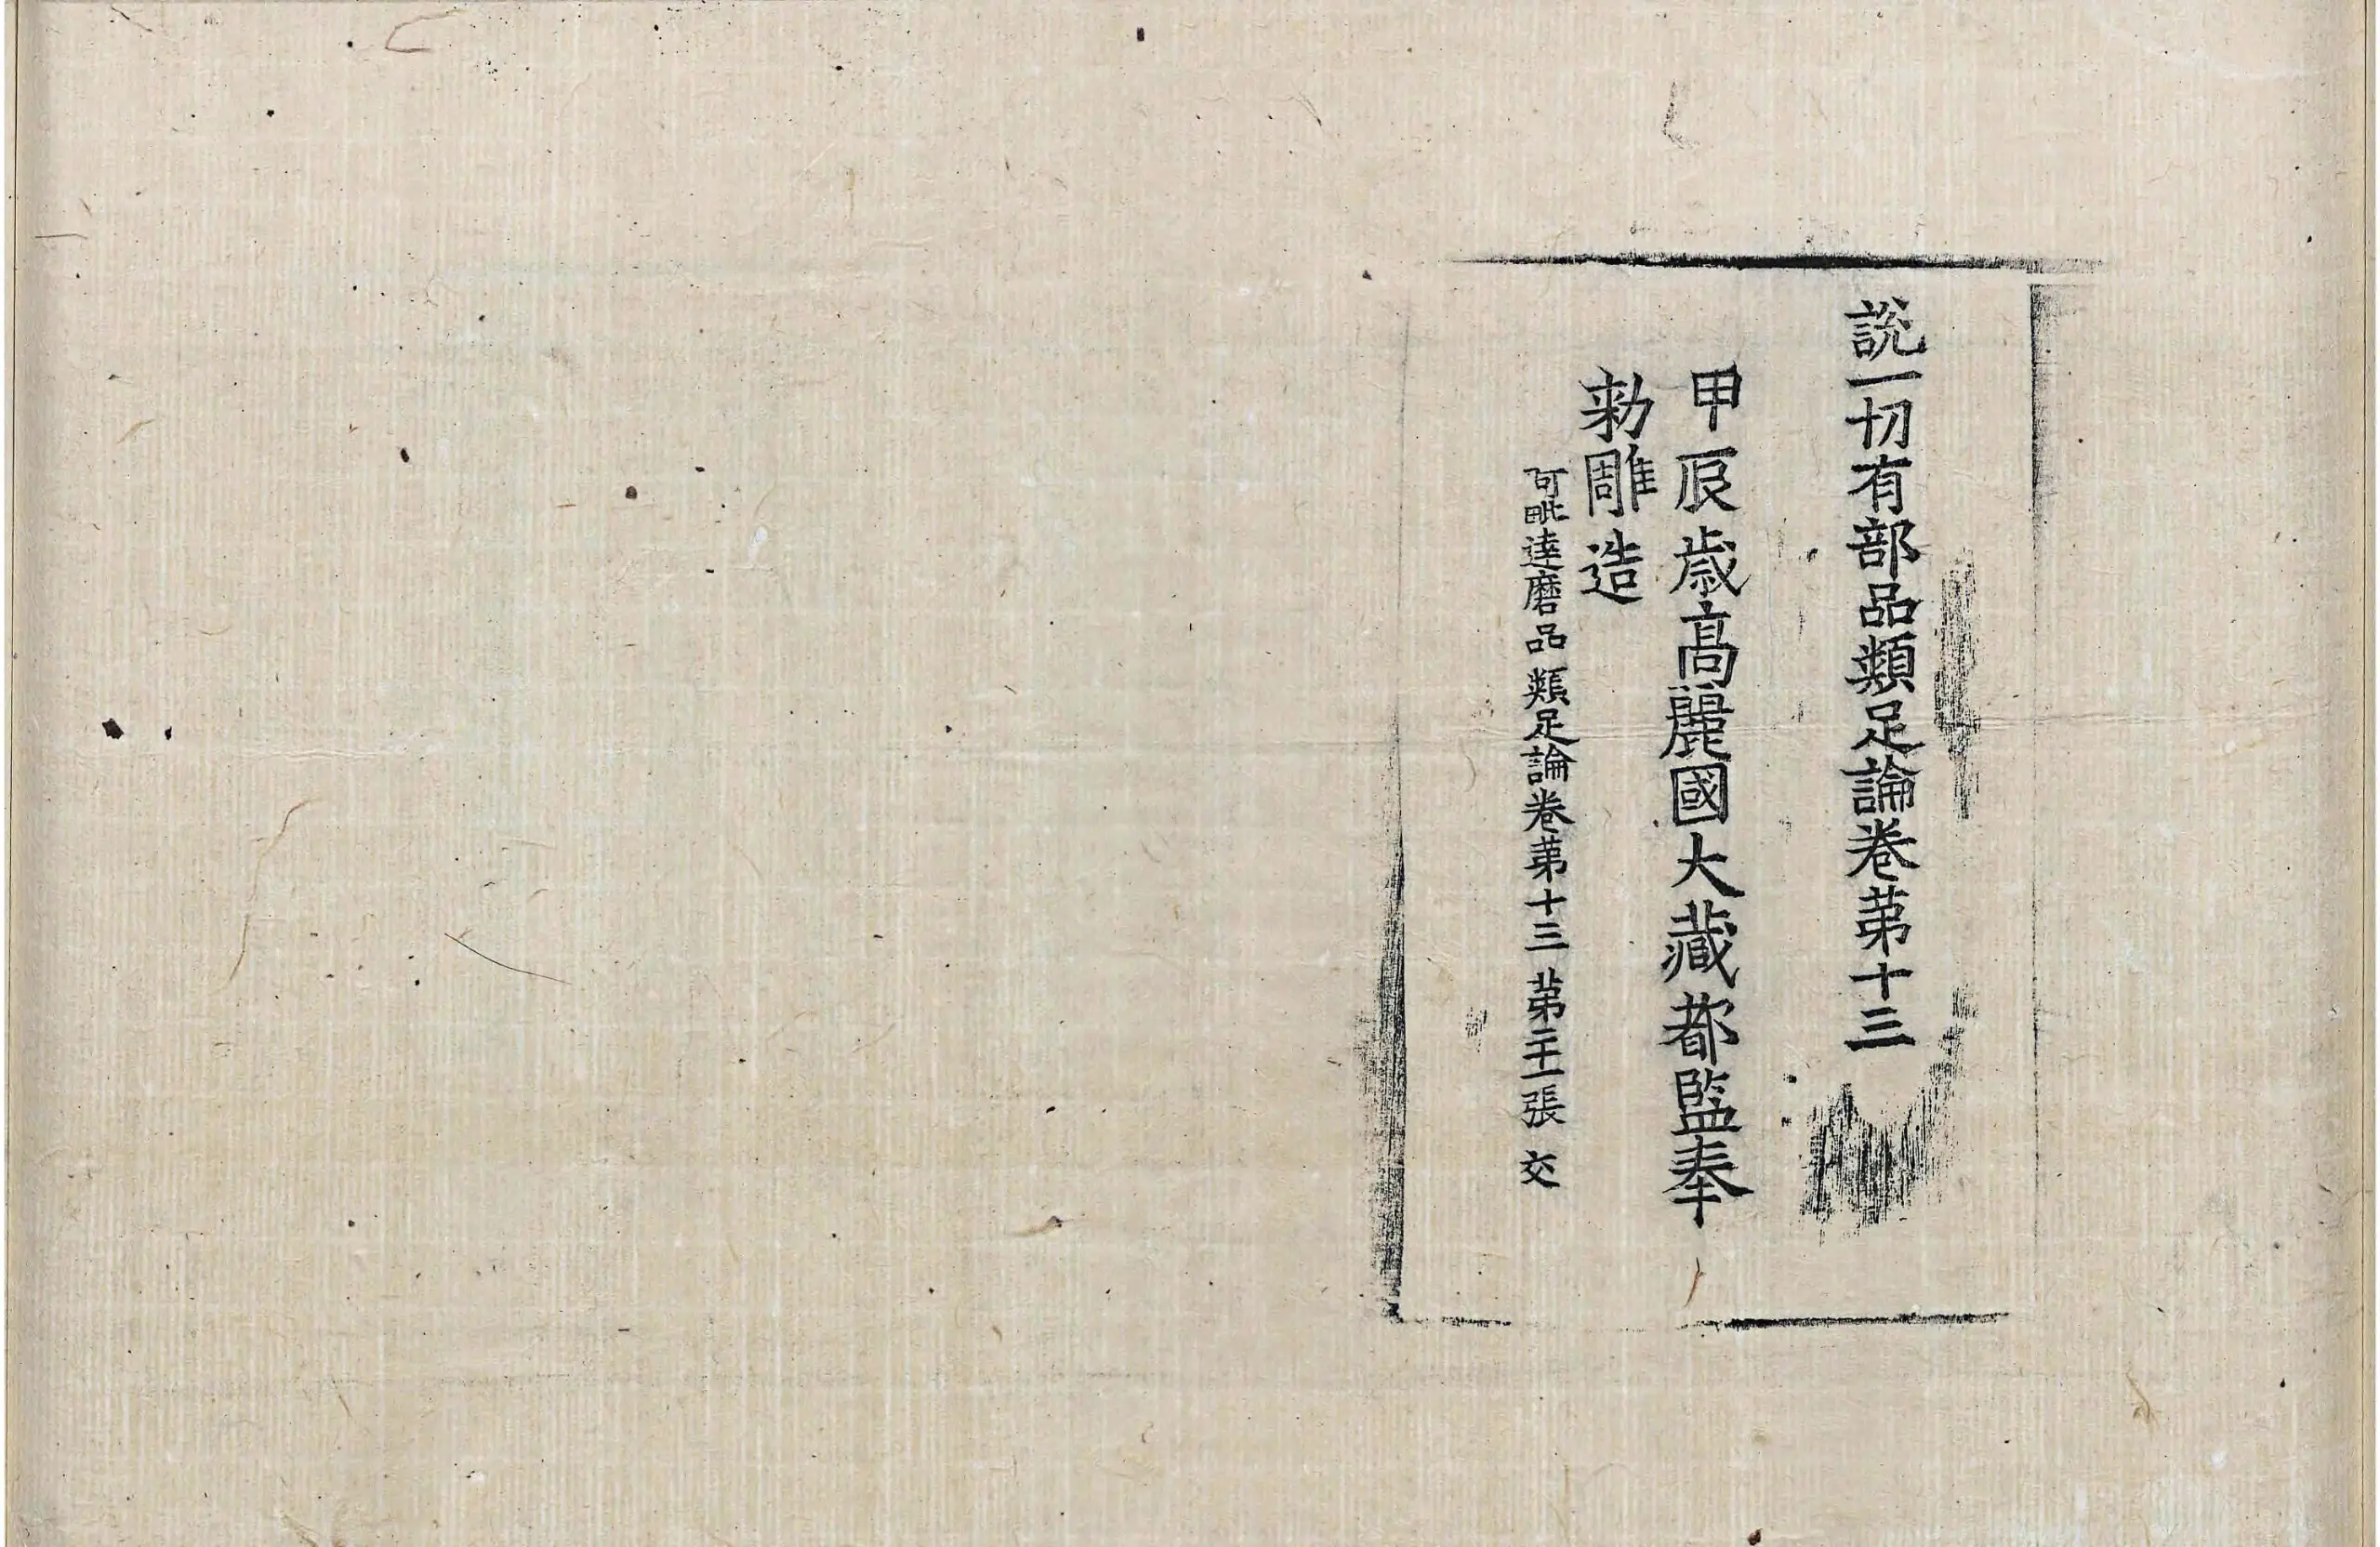 說一切有部品類足論卷苐十三
甲辰歳高麗國大藏都監奉
勑雕造
阿毗達磨品類足論卷苐十三 苐二十一張 交